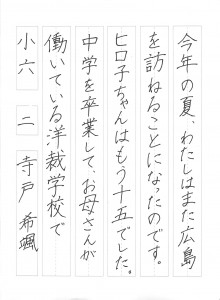 今年の夏、わたしはまた広島
を訪ねることになったのです。
ヒロ子ちゃんはもう十五でした。
中学を卒業して、お母さんが
働いている洋裁学校で
小六 二 寺戸 希颯